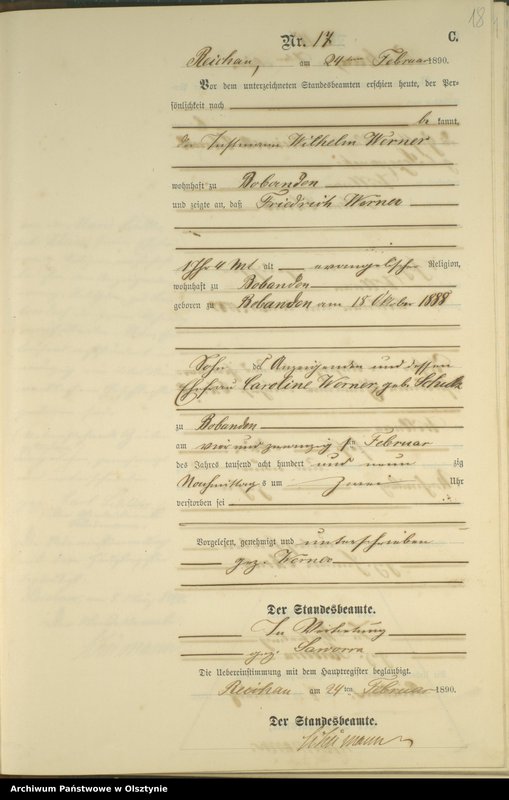 18
C.
Nr. 17
Reichau, am 24ten Februar 1890.
Vor dem unterzeichneten Standesbeamten erschien heute, der Per-
sönlichkeit nach
be kannt,
der Instmann Wilhelm Werner
wohnhaft zu Bobanden
und zeigte an, daß Friedrich Werner
1 Jhr 4 Mt alt evangelischer Religion,
wohnhaft zu Bobanden
geboren zu Bobanden am 18 Oktober 1888
Sohn des Anzeigenden und dessen
Ehefrau Caroline Werner, geb. Schultz
zu Bobanden
am vier und zwanzig ten Februar
des Jahres tausend acht hundert und neun zig
Nachmittag s um Zwei Uhr
verstorben sei
Vorgelesen, genehmigt und unterschrieben
gez. Werner
Der Standesbeamte.
In Vertretung
gez. Saworra
Die Uebereinstimmung mit dem Hauptregister beglaubigt.
Reichau am 24ten Februar 1890.
Der Standesbeamte.
Archiwum Państwowe w Olsztynie